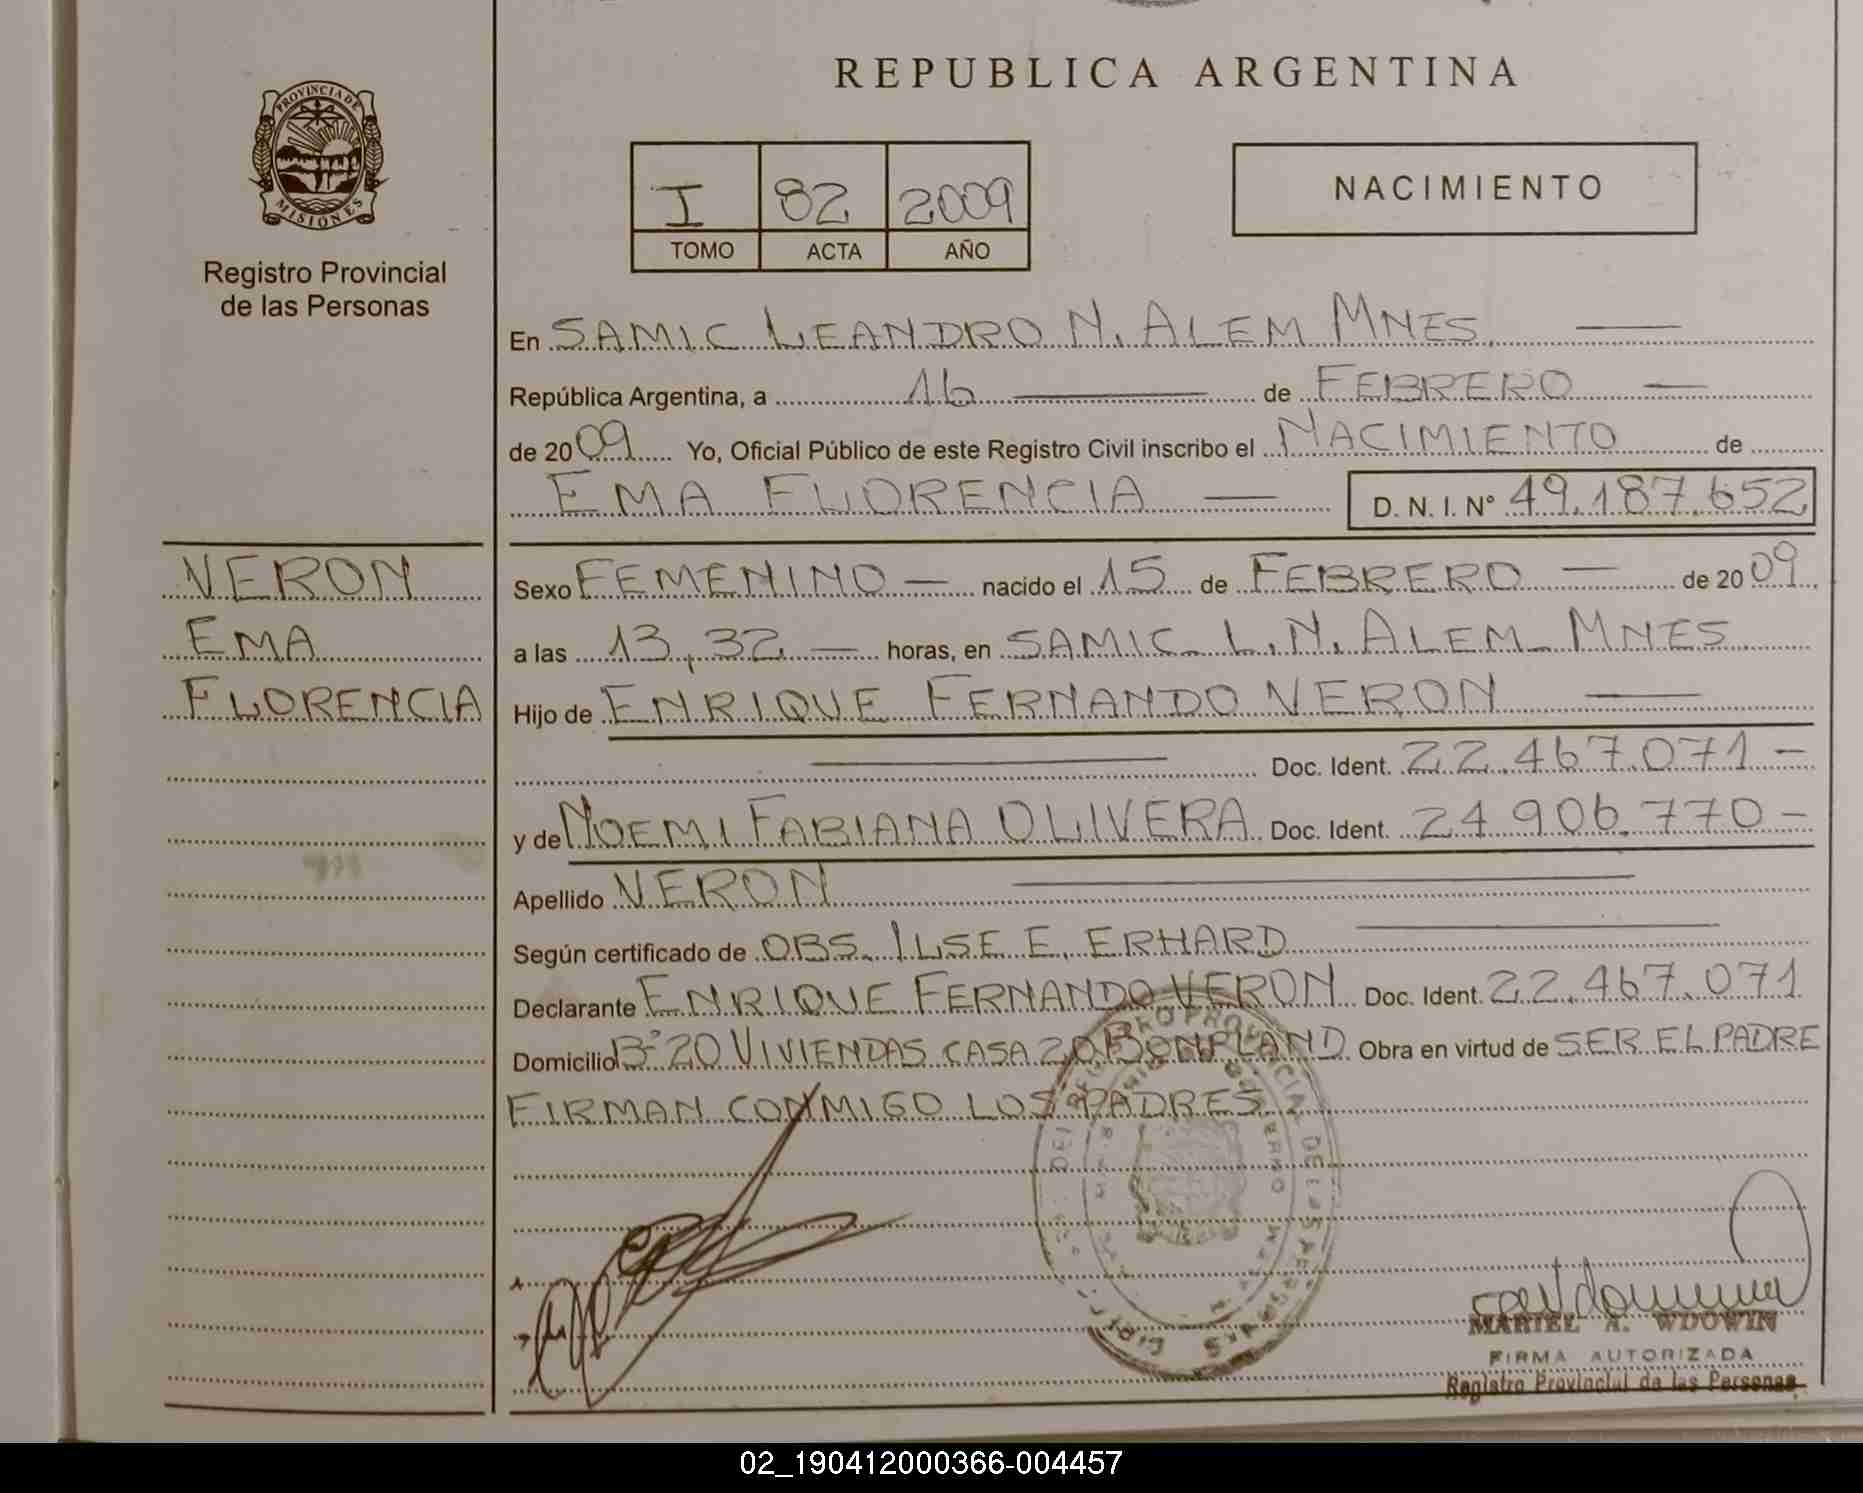 REPUBLICA ARGENTINA
PROVINCIA DE
MISIONES
Registro Provincial
de las Personas
I 82 2009
TOMO ACTA AÑO
NACIMIENTO
En SAMIC LEANDRO N. ALEM MNES.
República Argentina, a 16 de FEBRERO
de 2009 Yo, Oficial Público de este Registro Civil inscribo el NACIMIENTO de
EMA FLORENCIA D. N. I. N° 49.187.652
VERON
EMA
FLORENCIA
Sexo FEMENINO nacido el 15 de FEBRERO de 2009
a las 13,32 horas, en SAMIC L.N. ALEM MNES
Hijo de ENRIQUE FERNANDO VERON
Doc. Ident. 22.467.071
y de NOEMI FABIANA OLIVERA Doc. Ident. 24 906.770
Apellido VERON
Según certificado de OBS. ILSE E. ERHARD
Declarante ENRIQUE FERNANDO VERON Doc. Ident. 22.467.071
Domicilio B° 20 VIVIENDAS CASA 20 BONPLAND Obra en virtud de SER EL PADRE
FIRMAN CONMIGO LOS PADRES
MARIEL A. WDOWIN
FIRMA AUTORIZADA
Registro Provincial de las Personas
02_190412000366-004457